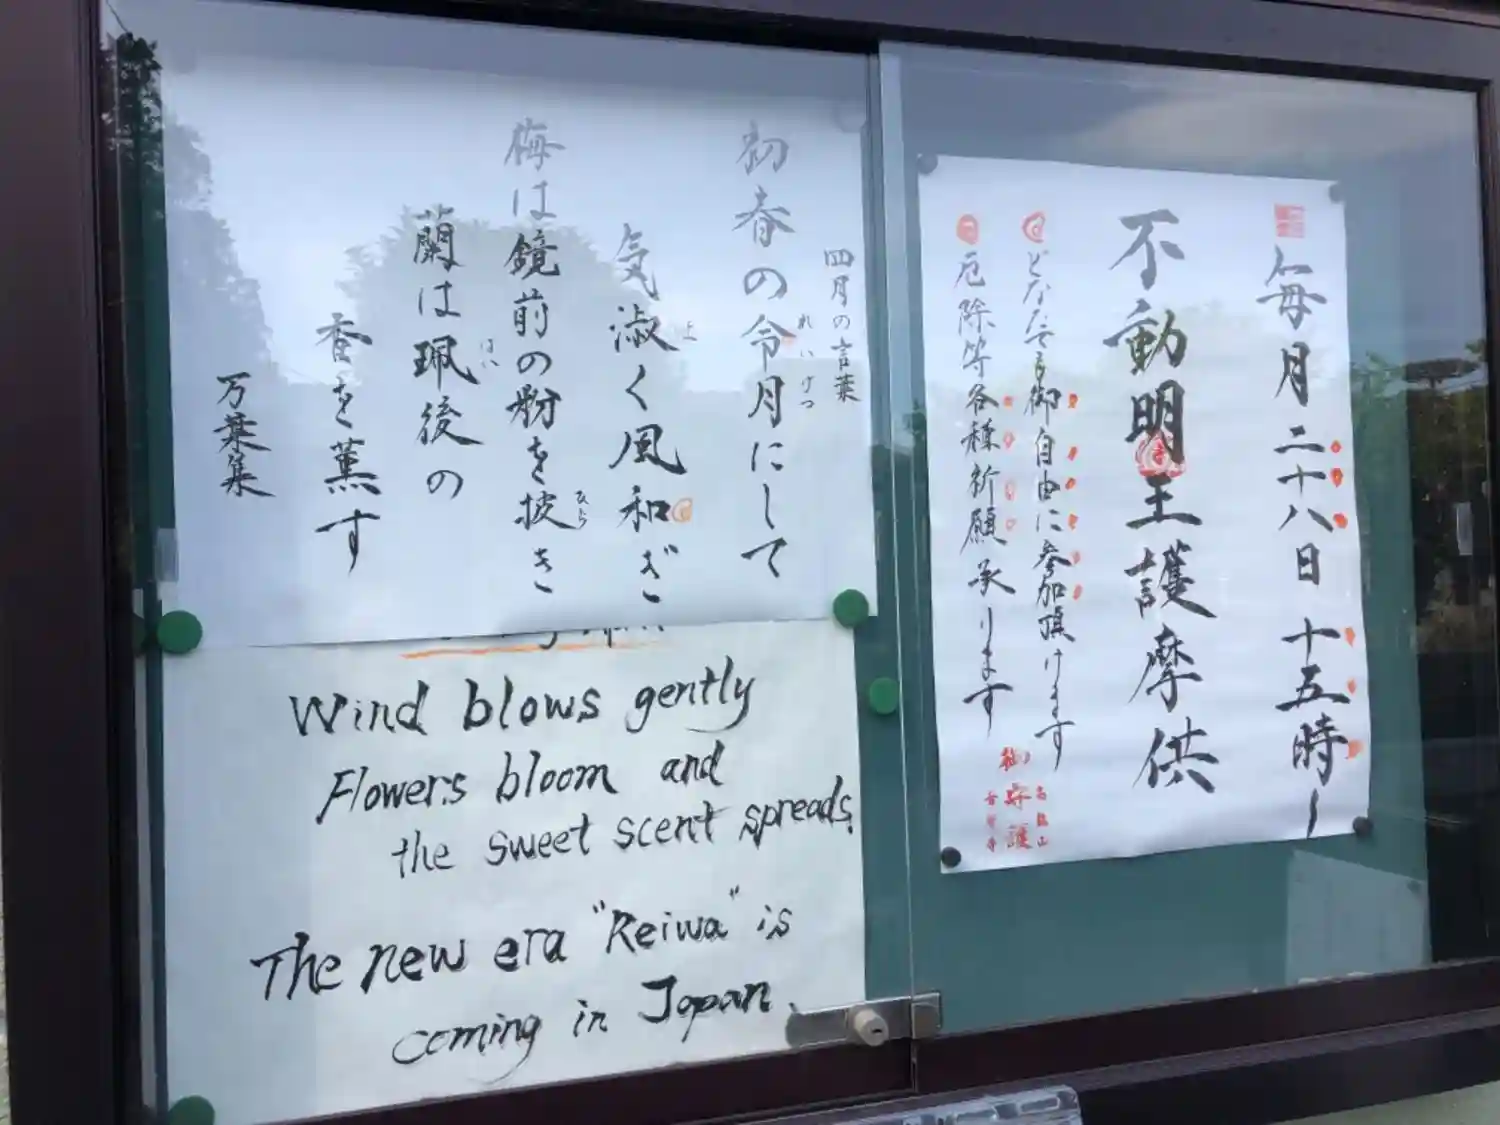 毎月二十八日十五時〜
不動明王護摩供
どなたでも御自由に参加頂けます
厄除等各種祈願承ります
御守護
四月の言葉
初春の令月にして
れいげつ
気淑く風和ぎ
よ
梅は鏡前の粉を披き
ひら
蘭は珮後の
はい
香を薫す
万葉集
Wind blows gently
Flowers bloom and
the sweet scent spreads.
The new era "Reiwa" is
coming in Japan.